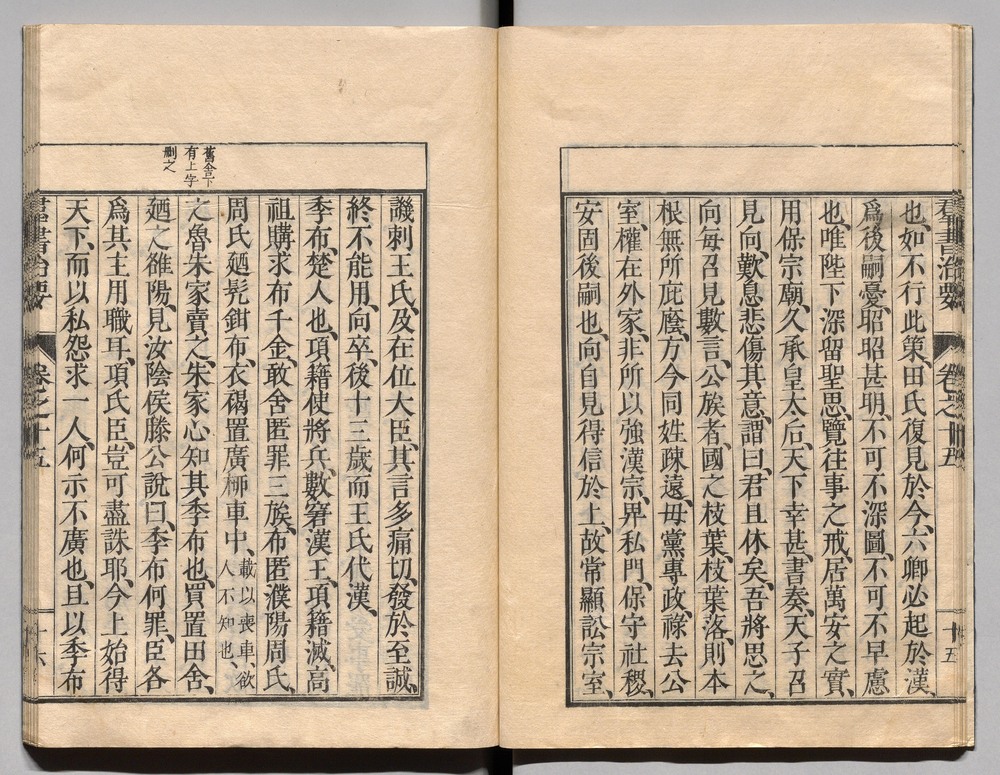 羣書治要 卷之十五 十五
也、如不行此策、田氏復見於今、六卿必起於漢、
爲後嗣憂、昭昭甚明、不可不深圖、不可不早慮
也、唯陛下深留聖思、覽往事之戒、居萬安之實、
用保宗廟、久承皇太后、天下幸甚、書奏、天子召
見向、歎息悲傷其意、謂曰、君且休矣、吾將思之、
向每召見數言、公族者、國之枝葉、枝葉落、則本
根無所庇廕、方今同姓疎遠、毋黨專政、祿去公
室、權在外家、非所以強漢宗、畀私門、保守社稷、
安固後嗣也、向自見得信於上、故常顯訟宗室、
譏刺王氏、及在位大臣、其言多痛切、發於至誠、
終不能用、向卒、後十三歲而王氏代漢、
季布、楚人也、項籍使將兵、數窘漢王、項籍滅、高
祖購求布千金、敢舍匿罪三族、布匿濮陽周氏、
周氏廼髠鉗布、衣褐置廣柳車中、載以喪車、欲人不知也、
之魯朱家賣之、朱家心知其季布也、買置田舍、
廼之雒陽、見汝陰侯滕公說曰、季布何罪、臣各
爲其主用職耳、項氏臣、豈可盡誅耶、今上始得
天下、而以私怨求一人、何示不廣也、且以季布
舊舍下
有上字
刪之
羣書治要 卷之十五 十六